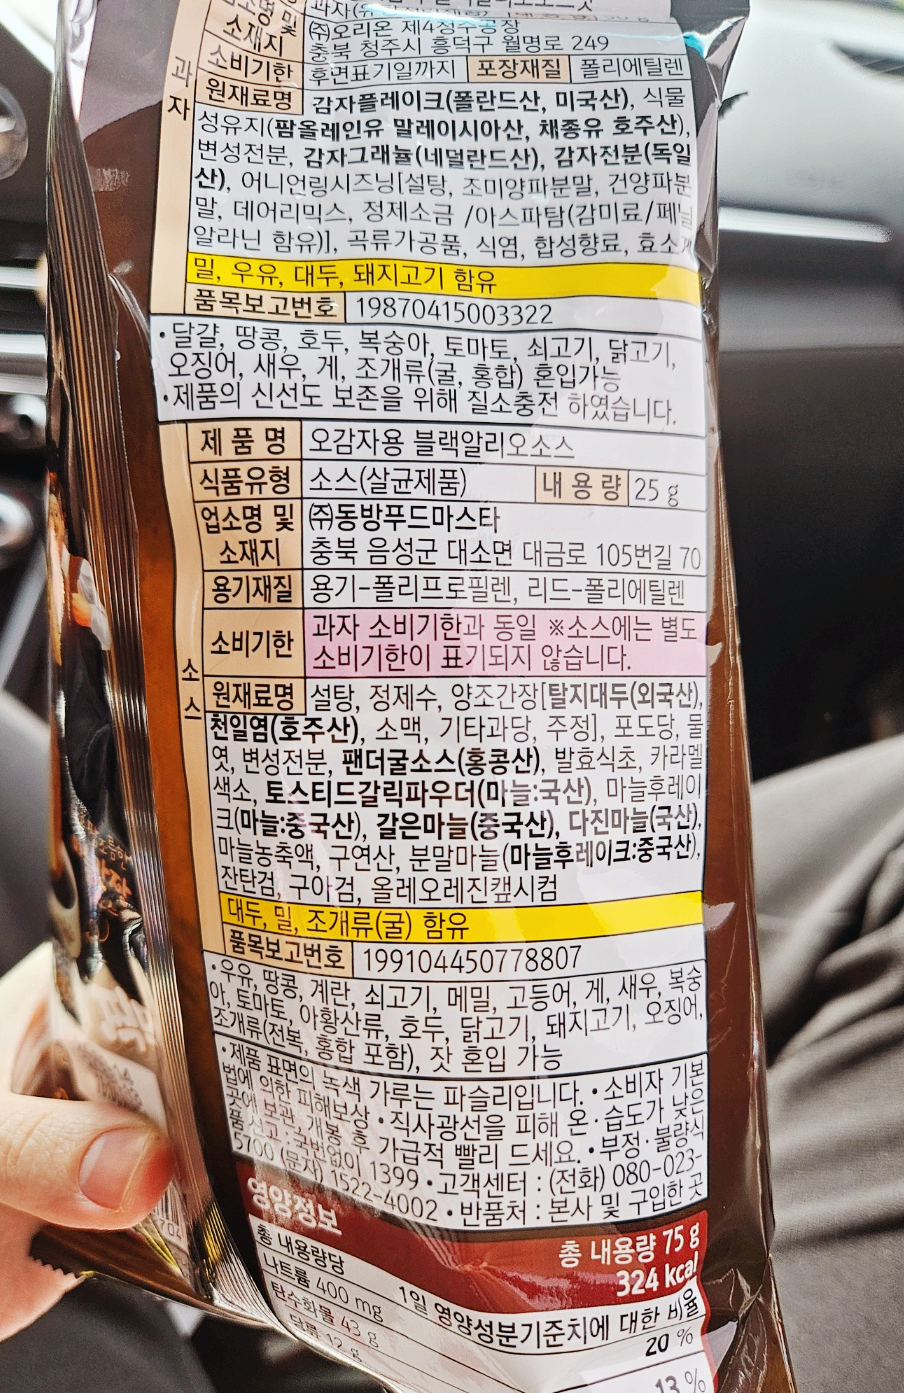 소재지
㈜오리온 제4청주공장
충북 청주시 흥덕구 월명로 249
소비기한 후면표기일까지 포장재질 폴리에틸렌
과자
원재료명 감자플레이크(폴란드산, 미국산), 식물
성유지(팜올레인유 말레이시아산, 채종유 호주산),
변성전분, 감자그래뉼(네덜란드산), 감자전분(독일
산), 어니언링시즈닝[설탕, 조미양파분말, 건양파분
말, 데어리믹스, 정제소금 /아스파탐(감미료/페닐
알라닌 함유)], 곡류가공품, 식염, 합성향료, 효소제
밀, 우유, 대두, 돼지고기 함유
품목보고번호 19870415003322
·달걀, 땅콩, 호두, 복숭아, 토마토, 쇠고기, 닭고기,
오징어, 새우, 게, 조개류(굴, 홍합) 혼입가능
·제품의 신선도 보존을 위해 질소충전 하였습니다.
제품명 오감자용 블랙알리오소스
식품유형 소스(살균제품) 내용량 25 g
업소명 및 ㈜동방푸드마스타
소재지 충북 음성군 대소면 대금로 105번길 70
용기재질 용기-폴리프로필렌, 리드-폴리에틸렌
소비기한 과자 소비기한과 동일 ※소스에는 별도
소비기한이 표기되지 않습니다.
소스
원재료명 설탕, 정제수, 양조간장[탈지대두(외국산),
천일염(호주산), 소맥, 기타과당, 주정], 포도당, 물
엿, 변성전분, 팬더굴소스(홍콩산), 발효식초, 카라멜
색소, 토스티드갈릭파우더(마늘:국산), 마늘후레이
크(마늘:중국산), 갈은마늘(중국산), 다진마늘(국산),
마늘농축액, 구연산, 분말마늘(마늘후레이크:중국산),
잔탄검, 구아검, 올레오레진캪시컴
대두, 밀, 조개류(굴) 함유
품목보고번호 199104450778807
·우유, 땅콩, 계란, 쇠고기, 메밀, 고등어, 게, 새우, 복숭
아, 토마토, 아황산류, 호두, 닭고기, 돼지고기, 오징어,
조개류(전복, 홍합 포함), 잣 혼입 가능
·제품 표면의 녹색 가루는 파슬리입니다. ·소비자 기본
법에 의한 피해보상 ·직사광선을 피해 온·습도가 낮은
곳에 보관, 개봉 후 가급적 빨리 드세요. ·부정·불량식
품신고 : 국번없이 1399 ·고객센터 : (전화) 080-023-
5700 (문자) 1522-4002 ·반품처 : 본사 및 구입한 곳
영양정보
총 내용량 75 g
324 kcal
총 내용량당 1일 영양성분기준치에 대한 비율
나트륨 400 mg 20 %
탄수화물 43 g 13 %
당류 12 g